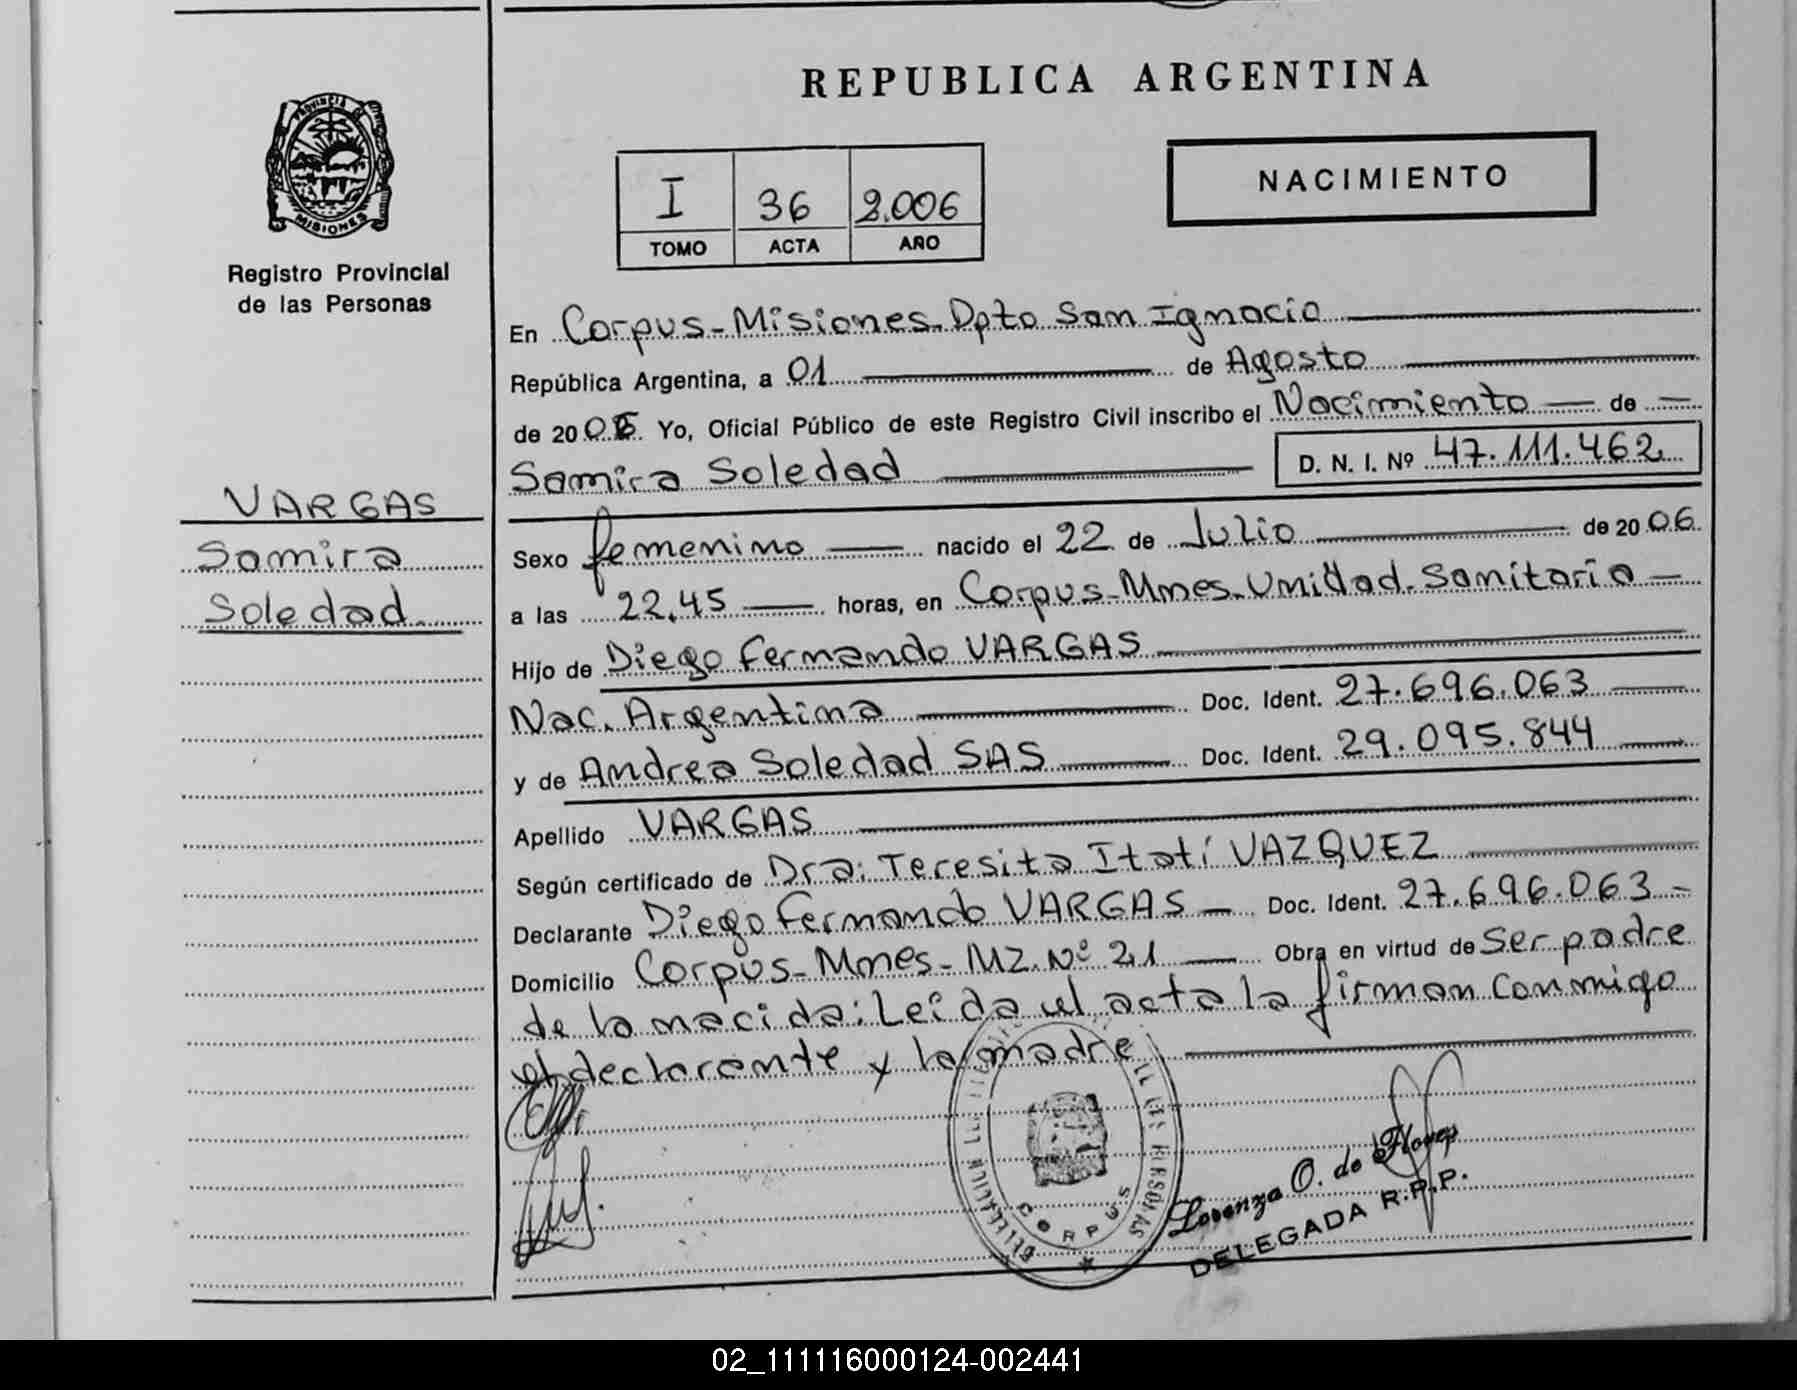 REPUBLICA ARGENTINA
PROVINCIA
MISIONES
Registro Provincial
de las Personas
I 36 2.006
TOMO ACTA AÑO
NACIMIENTO
En Corpus-Misiones-Dpto San Ignacio
República Argentina, a 01 de Agosto
de 2006 Yo, Oficial Público de este Registro Civil inscribo el Nacimiento — de —
Samira Soledad D. N. I. Nº 47.111.462
VARGAS
Samira
Soledad
Sexo femenino — nacido el 22 de Julio de 2006
a las 22,45 — horas, en Corpus-Mnes-Unidad Sanitaria —
Hijo de Diego Fernando VARGAS
Nac. Argentina Doc. Ident. 27.696.063
y de Andrea Soledad SAS Doc. Ident. 29.095.844
Apellido VARGAS
Según certificado de Dra: Teresita Itatí VAZQUEZ
Declarante Diego Fernando VARGAS — Doc. Ident. 27.696.063 —
Domicilio Corpus-Mnes-MZ.Nº 21 — Obra en virtud de Ser padre
de la nacida: Leída el acta la firman conmigo
el declarante y la madre
CORPUS
Lorenza O. de Flores
DELEGADA R.P.P.
02_111116000124-002441